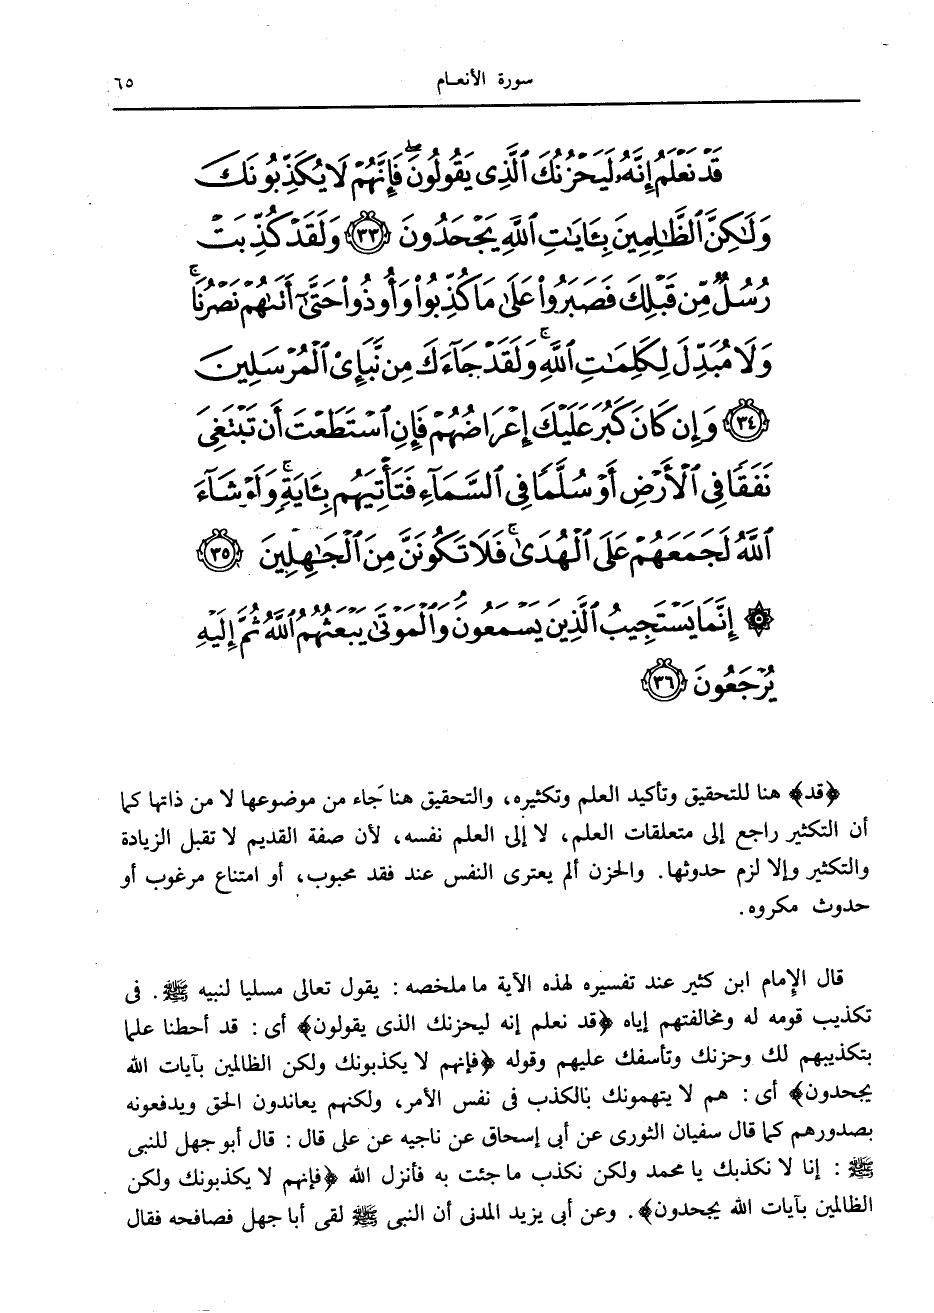 سورة الأنعـام ٦٥
قَدْ نَعْلَمُ إِنَّهُۥ لَيَحْزُنُكَ ٱلَّذِى يَقُولُونَۖ فَإِنَّهُمْ لَا يُكَذِّبُونَكَ
وَلَٰكِنَّ ٱلظَّٰلِمِينَ بِـَٔايَٰتِ ٱللَّهِ يَجْحَدُونَ ٣٣ وَلَقَدْ كُذِّبَتْ
رُسُلٌ مِّن قَبْلِكَ فَصَبَرُوا۟ عَلَىٰ مَا كُذِّبُوا۟ وَأُوذُوا۟ حَتَّىٰٓ أَتَىٰهُمْ نَصْرُنَاۚ
وَلَا مُبَدِّلَ لِكَلِمَٰتِ ٱللَّهِۚ وَلَقَدْ جَآءَكَ مِن نَّبَإِى۟ ٱلْمُرْسَلِينَ
٣٤ وَإِن كَانَ كَبُرَ عَلَيْكَ إِعْرَاضُهُمْ فَإِنِ ٱسْتَطَعْتَ أَن تَبْتَغِىَ
نَفَقًا فِى ٱلْأَرْضِ أَوْ سُلَّمًا فِى ٱلسَّمَآءِ فَتَأْتِيَهُم بِـَٔايَةٍۚ وَلَوْ شَآءَ
ٱللَّهُ لَجَمَعَهُمْ عَلَى ٱلْهُدَىٰۚ فَلَا تَكُونَنَّ مِنَ ٱلْجَٰهِلِينَ ٣٥
۞ إِنَّمَا يَسْتَجِيبُ ٱلَّذِينَ يَسْمَعُونَۘ وَٱلْمَوْتَىٰ يَبْعَثُهُمُ ٱللَّهُ ثُمَّ إِلَيْهِ
يُرْجَعُونَ ٣٦
﴿قد﴾ هنا للتحقيق وتأكيد العلم وتكثيره، والتحقيق هنا جاء من موضوعها لا من ذاتها كما
أن التكثير راجع إلى متعلقات العلم، لا إلى العلم نفسه، لأن صفة القديم لا تقبل الزيادة
والتكثير وإلا لزم حدوثها. والحزن ألم يعترى النفس عند فقد محبوب، أو امتناع مرغوب أو
حدوث مكروه.
قال الإمام ابن كثير عند تفسيره لهذه الآية ما ملخصه : يقول تعالى مسليا لنبيه ﷺ . فى
تكذيب قومه له ومخالفتهم إياه ﴿قد نعلم إنه ليحزنك الذى يقولون﴾ أى : قد أحطنا علما
بتكذيبهم لك وحزنك وتأسفك عليهم وقوله ﴿فإنهم لا يكذبونك ولكن الظالمين بآيات الله
يجحدون﴾ أى : هم لا يتهمونك بالكذب فى نفس الأمر، ولكنهم يعاندون الحق ويدفعونه
بصدورهم كما قال سفيان الثورى عن أبى إسحاق عن ناجيه عن على قال : قال أبو جهل للنبى
ﷺ : إنا لا نكذبك يا محمد ولكن نكذب ما جئت به فأنزل الله ﴿فإنهم لا يكذبونك ولكن
الظالمين بآيات الله يجحدون﴾. وعن أبى يزيد المدنى أن النبى ﷺ لقى أبا جهل فصافحه فقال